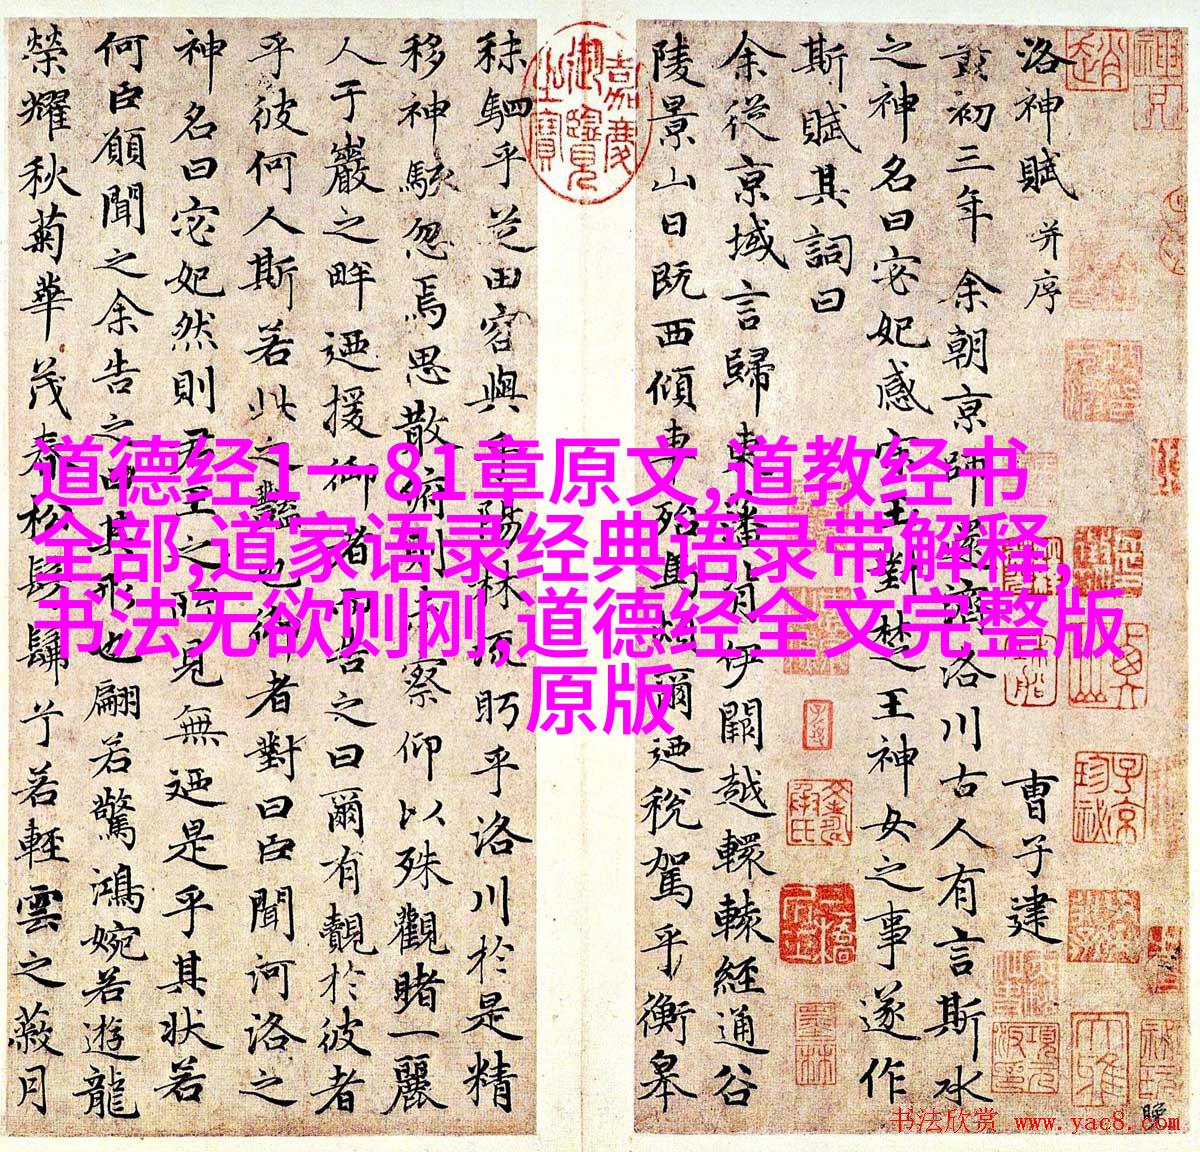 洛神賦 并序 曹子建
黃初三年余朝京師還濟洛川古人有言斯水
之神名曰宓妃感宋玉對楚王神女之事遂作
斯賦其詞曰
余從京域言歸東藩背伊闕越轘轅經通谷
陵景山日既西傾車殆馬煩爾迺稅駕乎衡皋
嘉慶御覽之寶
秣駟乎芝田容與乎陽林流眄乎洛川於是精
移神駭忽焉思散俯則未察仰以殊觀睹一麗
人于巖之畔迺援御者而告之曰爾有覿於彼者
乎彼何人斯若此之豔也御者對曰臣聞河洛之
神名曰宓妃然則君王之所見無迺是乎其狀若
何臣願聞之余告之曰其形也翩若驚鴻婉若遊龍
榮耀秋菊華茂春松髣髴兮若輕雲之蔽月
道德经1一81章原文,道教经书
全部,道家语录经典语录带解释,
书法无欲则刚,道德经全文完整版
原版
书法欣赏 www.yac8.com